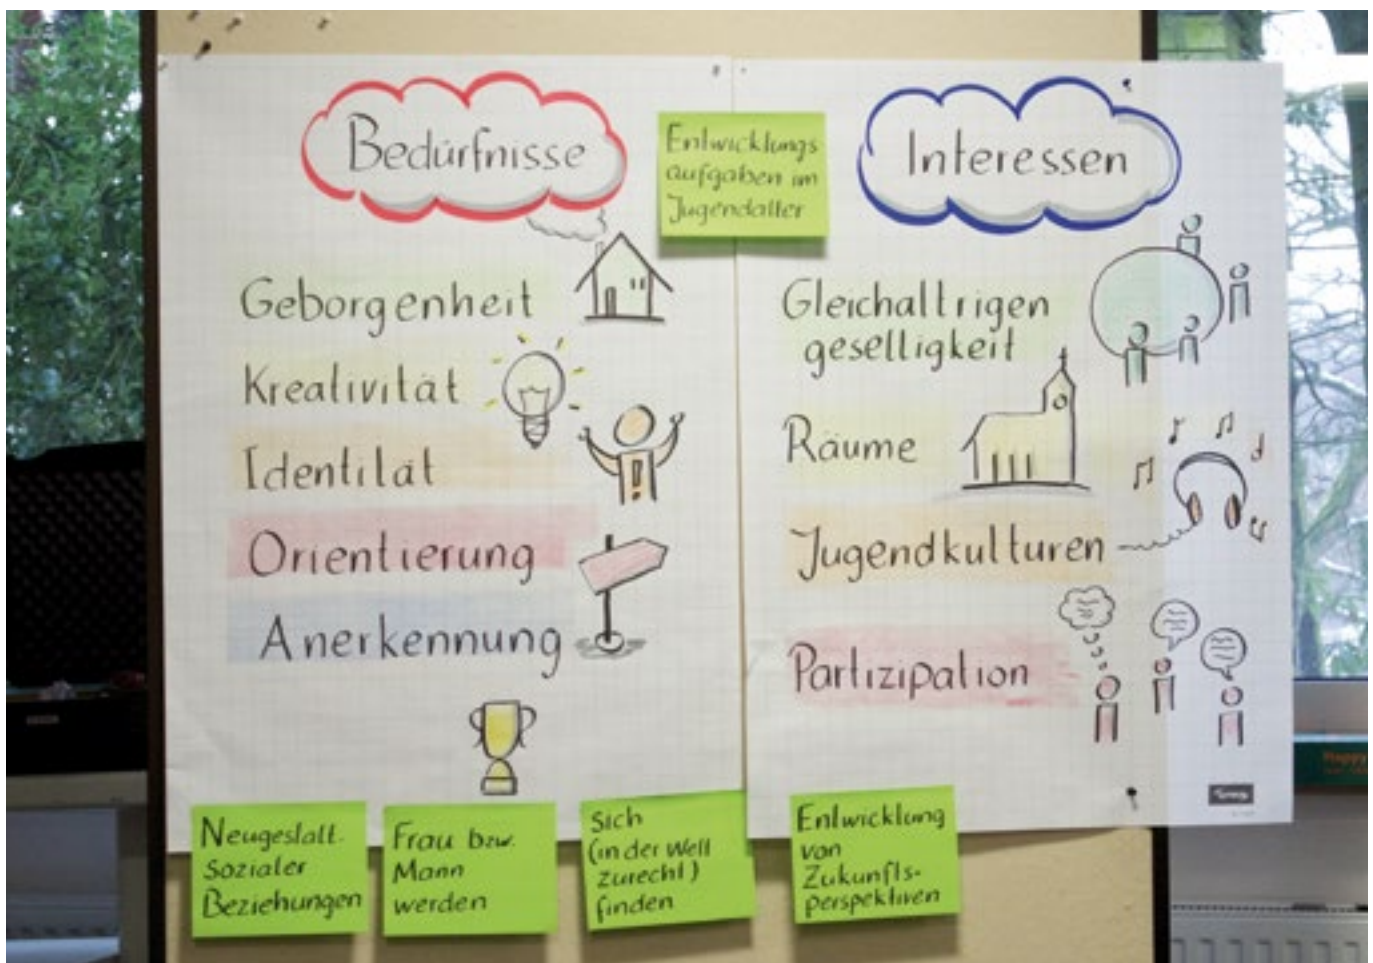 Bedürfnisse
Entwicklungs
aufgaben im
Jugendalter
Interessen
Geborgenheit
Kreativität
Identität
Orientierung
Anerkennung
Gleichaltrigen
geselligkeit
Räume
Jugendkulturen
Partizipation
Neugestalt.
Sozialer
Beziehungen
Frau bzw.
Mann
werden
Sich
(in der Welt
zurecht)
finden
Entwicklung
von
Zukunfts-
perspektiven
Happy